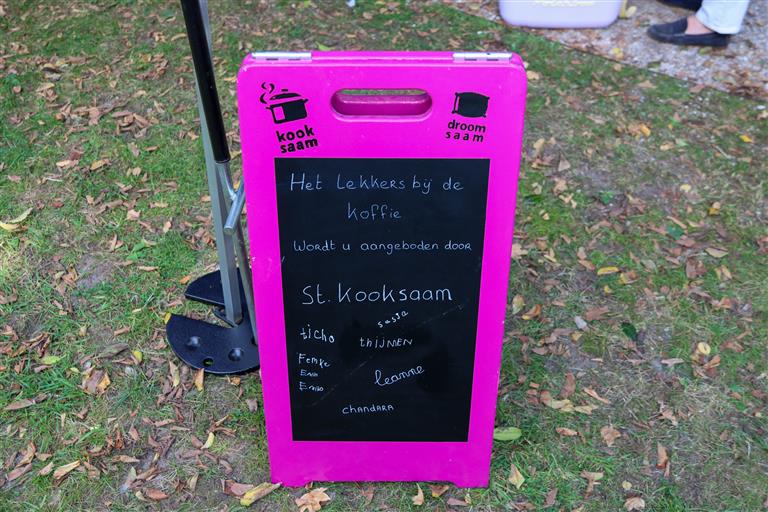 kook
saam
droom
saam
Het Lekkers bij de
koffie
Wordt u aangeboden door
St. Kooksaam
sassa
ticho
thijmen
Femke
Emko
leanne
chandara